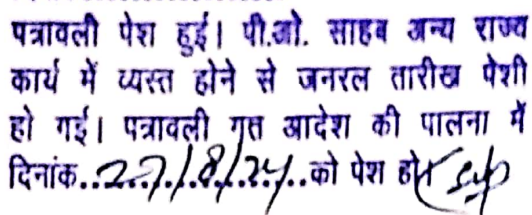 पत्रावली पेश हुई। पी.ओ. साहब अन्य राज्य
कार्य में व्यस्त होने से जनरल तारीख पेशी
हो गई। पत्रावली गत्त आदेश की पालना में
दिनांक..27/8/24..को पेश हो।